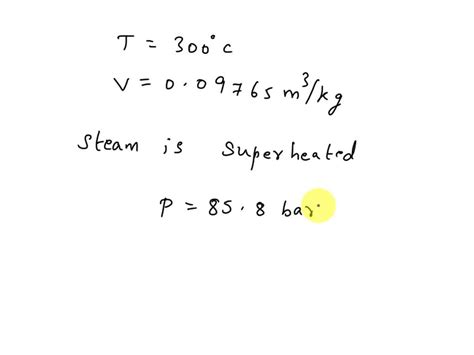 T = 300°c
V = 0.09765 m³/kg
Steam is Superheated
P = 85.8 bar